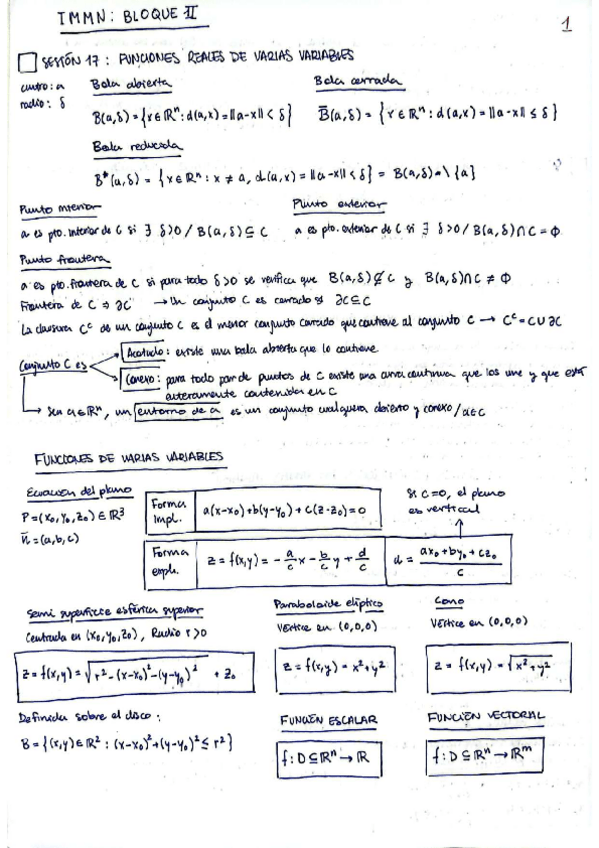 IMMN: BLOQUE II
1
SESIÓN 17: FUNCIONES REALES DE VARIAS VARIABLES
centro: a
radio: δ
Bola abierta
B(a,δ) = {x∈ℝⁿ: d(a,x) = ||a-x|| < δ}
Bola cerrada
B̅(a,δ) = {x∈ℝⁿ: d(a,x) = ||a-x|| ≤ δ}
Bola reducida
B*(a,δ) = {x∈ℝⁿ: x≠a, d(a,x) = ||a-x|| < δ} = B(a,δ) \ {a}
Punto interior
a es pto. interior de C si ∃ δ>0 / B(a,δ) ⊆ C
Punto exterior
a es pto. exterior de C si ∃ δ>0 / B(a,δ)∩C = Φ
Punto frontera
a es pto. frontera de C si para todo δ>0 se verifica que B(a,δ) ⊄ C y B(a,δ)∩C ≠ Φ
Frontera de C ⇒ ∂C → Un conjunto C es cerrado si ∂C⊆C
La clausura Cᶜ de un conjunto C es el menor conjunto cerrado que contiene al conjunto C → Cᶜ = C∪∂C
Conjunto C es
Acotado: existe una bola abierta que lo contiene
Conexo: para todo par de puntos de C existe una curva continua que los une y que está
enteramente contenida en C
Sea a∈ℝⁿ, un entorno de a es un conjunto cualquiera abierto y conexo / a∈C
FUNCIONES DE VARIAS VARIABLES
Ecuación del plano
P = (x₀, y₀, z₀) ∈ ℝ³
n̅ = (a,b,c)
Forma impl.
a(x-x₀)+b(y-y₀)+c(z-z₀)=0
Si c=0, el plano
es vertical
Forma expl.
z = f(x,y) = -a/c x - b/c y + d/c
d = ax₀+by₀+cz₀ / c
Semi superficie esférica superior
Centrada en (x₀, y₀, z₀), Radio r>0
z = f(x,y) = √(r²-(x-x₀)²-(y-y₀)²) + z₀
Definida sobre el disco:
B = {(x,y)∈ℝ²: (x-x₀)²+(y-y₀)² ≤ r²}
Paraboloide elíptico
Vértice en (0,0,0)
z = f(x,y) = x²+y²
Cono
Vértice en (0,0,0)
z = f(x,y) = √(x²+y²)
FUNCIÓN ESCALAR
f: D⊆ℝⁿ → ℝ
FUNCIÓN VECTORIAL
f: D⊆ℝⁿ → ℝᵐ